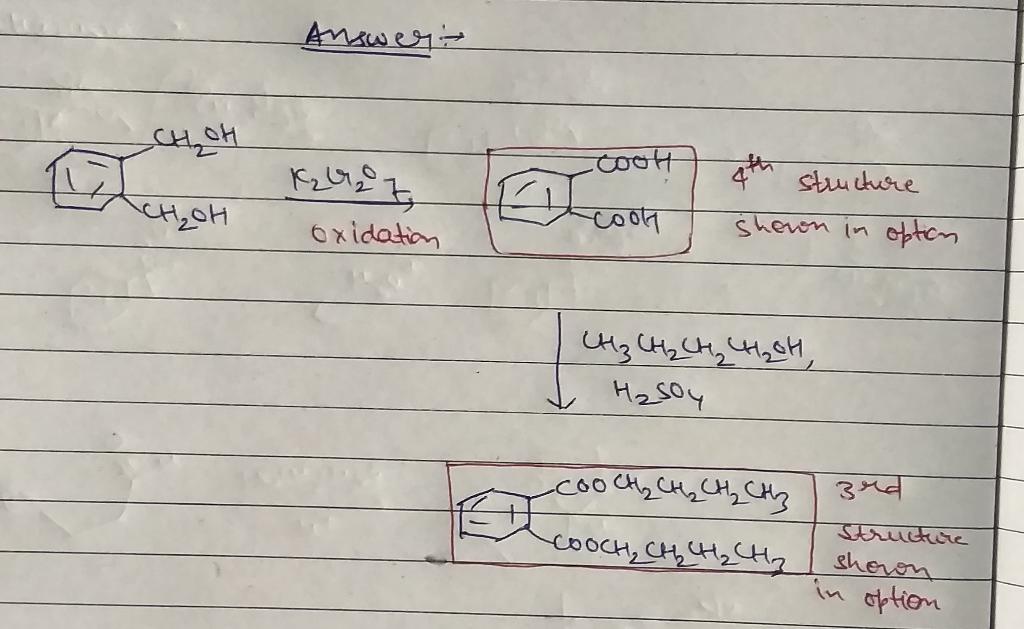 Answer :→
CH2OH
CH2OH
K2Cr2O7,
oxidation
COOH
COOH
4th structure
shown in option
CH3CH2CH2CH2OH,
H2SO4
COOCH2CH2CH2CH3
COOCH2CH2CH2CH3
3rd
structure
shown
in option